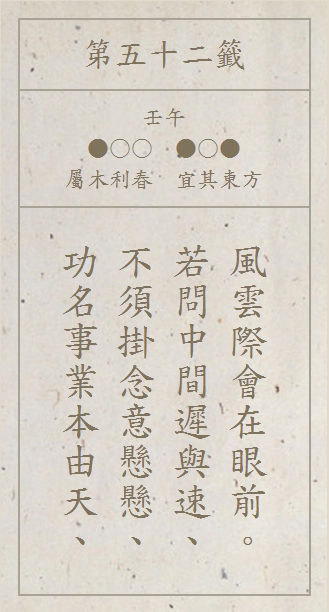 第五十二籤
壬午
●○○ ●○●
屬木利春 宜其東方
功名事業本由天、
不須掛念意懸懸、
若問中間遲與速、
風雲際會在眼前。